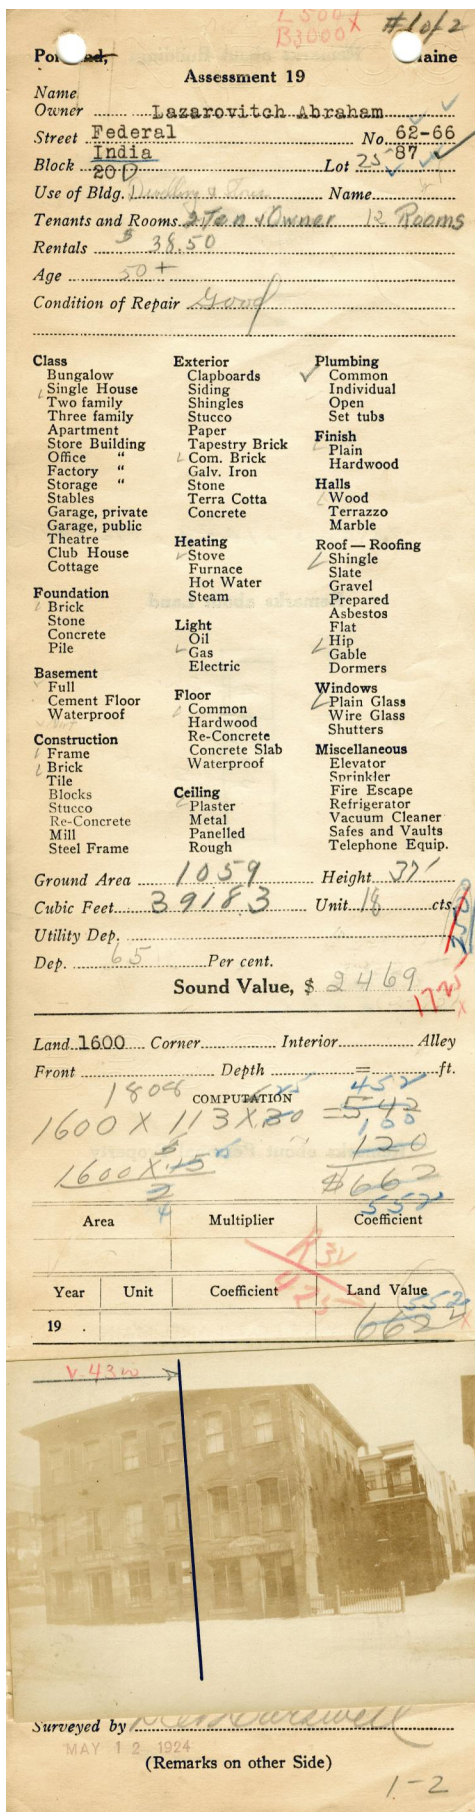 L 500 x #1 of 2
B 3000 x
Portland, Maine
Assessment 19
Name
Owner Lazarovitch Abraham
Street Federal No. 62-66
India 87
Block 20D Lot 25
Use of Bldg. Dwelling & Store Name
Tenants and Rooms 2 Ten & Owner 12 Rooms
Rentals $ 38.50
Age 50 +
Condition of Repair Good
Class
Bungalow
Single House
Two family
Three family
Apartment
Store Building
Office "
Factory "
Storage "
Stables
Garage, private
Garage, public
Theatre
Club House
Cottage
Foundation
Brick
Stone
Concrete
Pile
Basement
Full
Cement Floor
Waterproof
Construction
Frame
Brick
Tile
Blocks
Stucco
Re-Concrete
Mill
Steel Frame
Exterior
Clapboards
Siding
Shingles
Stucco
Paper
Tapestry Brick
Com. Brick
Galv. Iron
Stone
Terra Cotta
Concrete
Heating
Stove
Furnace
Hot Water
Steam
Light
Oil
Gas
Electric
Floor
Common
Hardwood
Re-Concrete
Concrete Slab
Waterproof
Ceiling
Plaster
Metal
Panelled
Rough
Plumbing
Common
Individual
Open
Set tubs
Finish
Plain
Hardwood
Halls
Wood
Terrazzo
Marble
Roof — Roofing
Shingle
Slate
Gravel
Prepared
Asbestos
Flat
Hip
Gable
Dormers
Windows
Plain Glass
Wire Glass
Shutters
Miscellaneous
Elevator
Sprinkler
Fire Escape
Refrigerator
Vacuum Cleaner
Safes and Vaults
Telephone Equip.
Ground Area 1059 Height 37'
Cubic Feet 39183 Unit 18 cts.
Utility Dep.
Dep. 65 Per cent.
Sound Value, $ 2469
1725 x
Land 1600 Corner Interior Alley
Front Depth = ft.
1808 COMPUTATION 25 452
1600 X 113 X 30 = 542
100
1600 X 15 120
2 $662
4 552
Area Multiplier Coefficient
R 32
925
Year Unit Coefficient Land Value
552
19 . 662 x
V-4300
Surveyed by
MAY 12 1924
(Remarks on other Side)
1-2